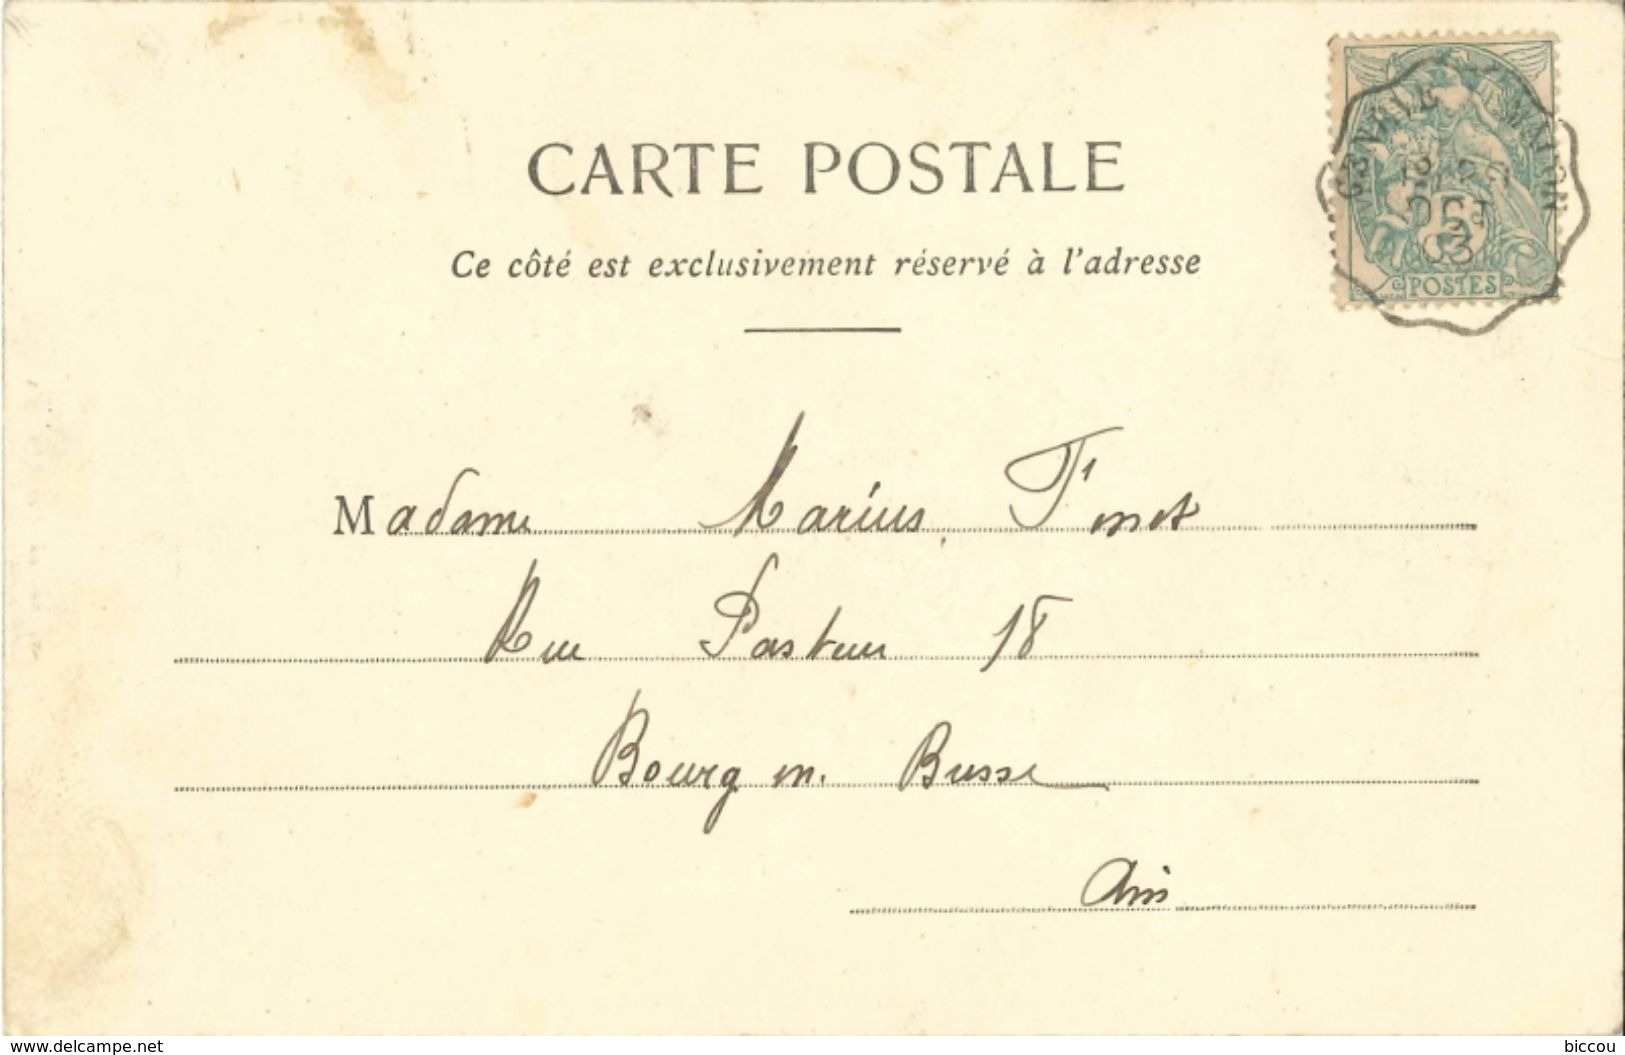 CARTE POSTALE
Ce côté est exclusivement réservé à l'adresse
GENÈVE MACON
OCT
03
5c
POSTES
Madame Marius
Rue Pasteur 18
Bourg en Bresse
Ain
www.delcampe.net
biccou